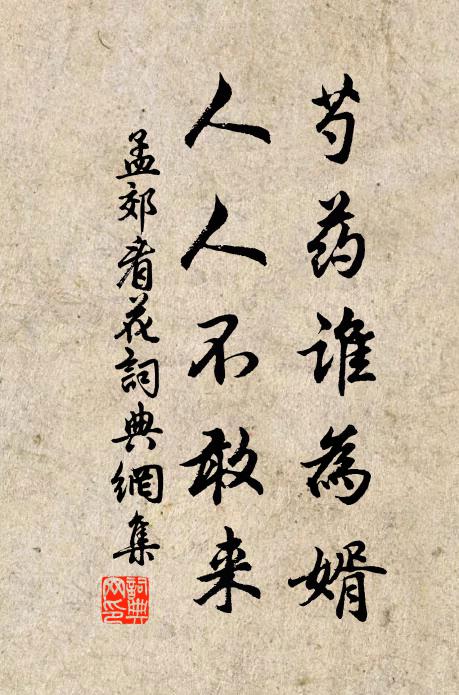 芍药谁為婿
人人不敢来
孟郊看花詞典網集
詞典
网印